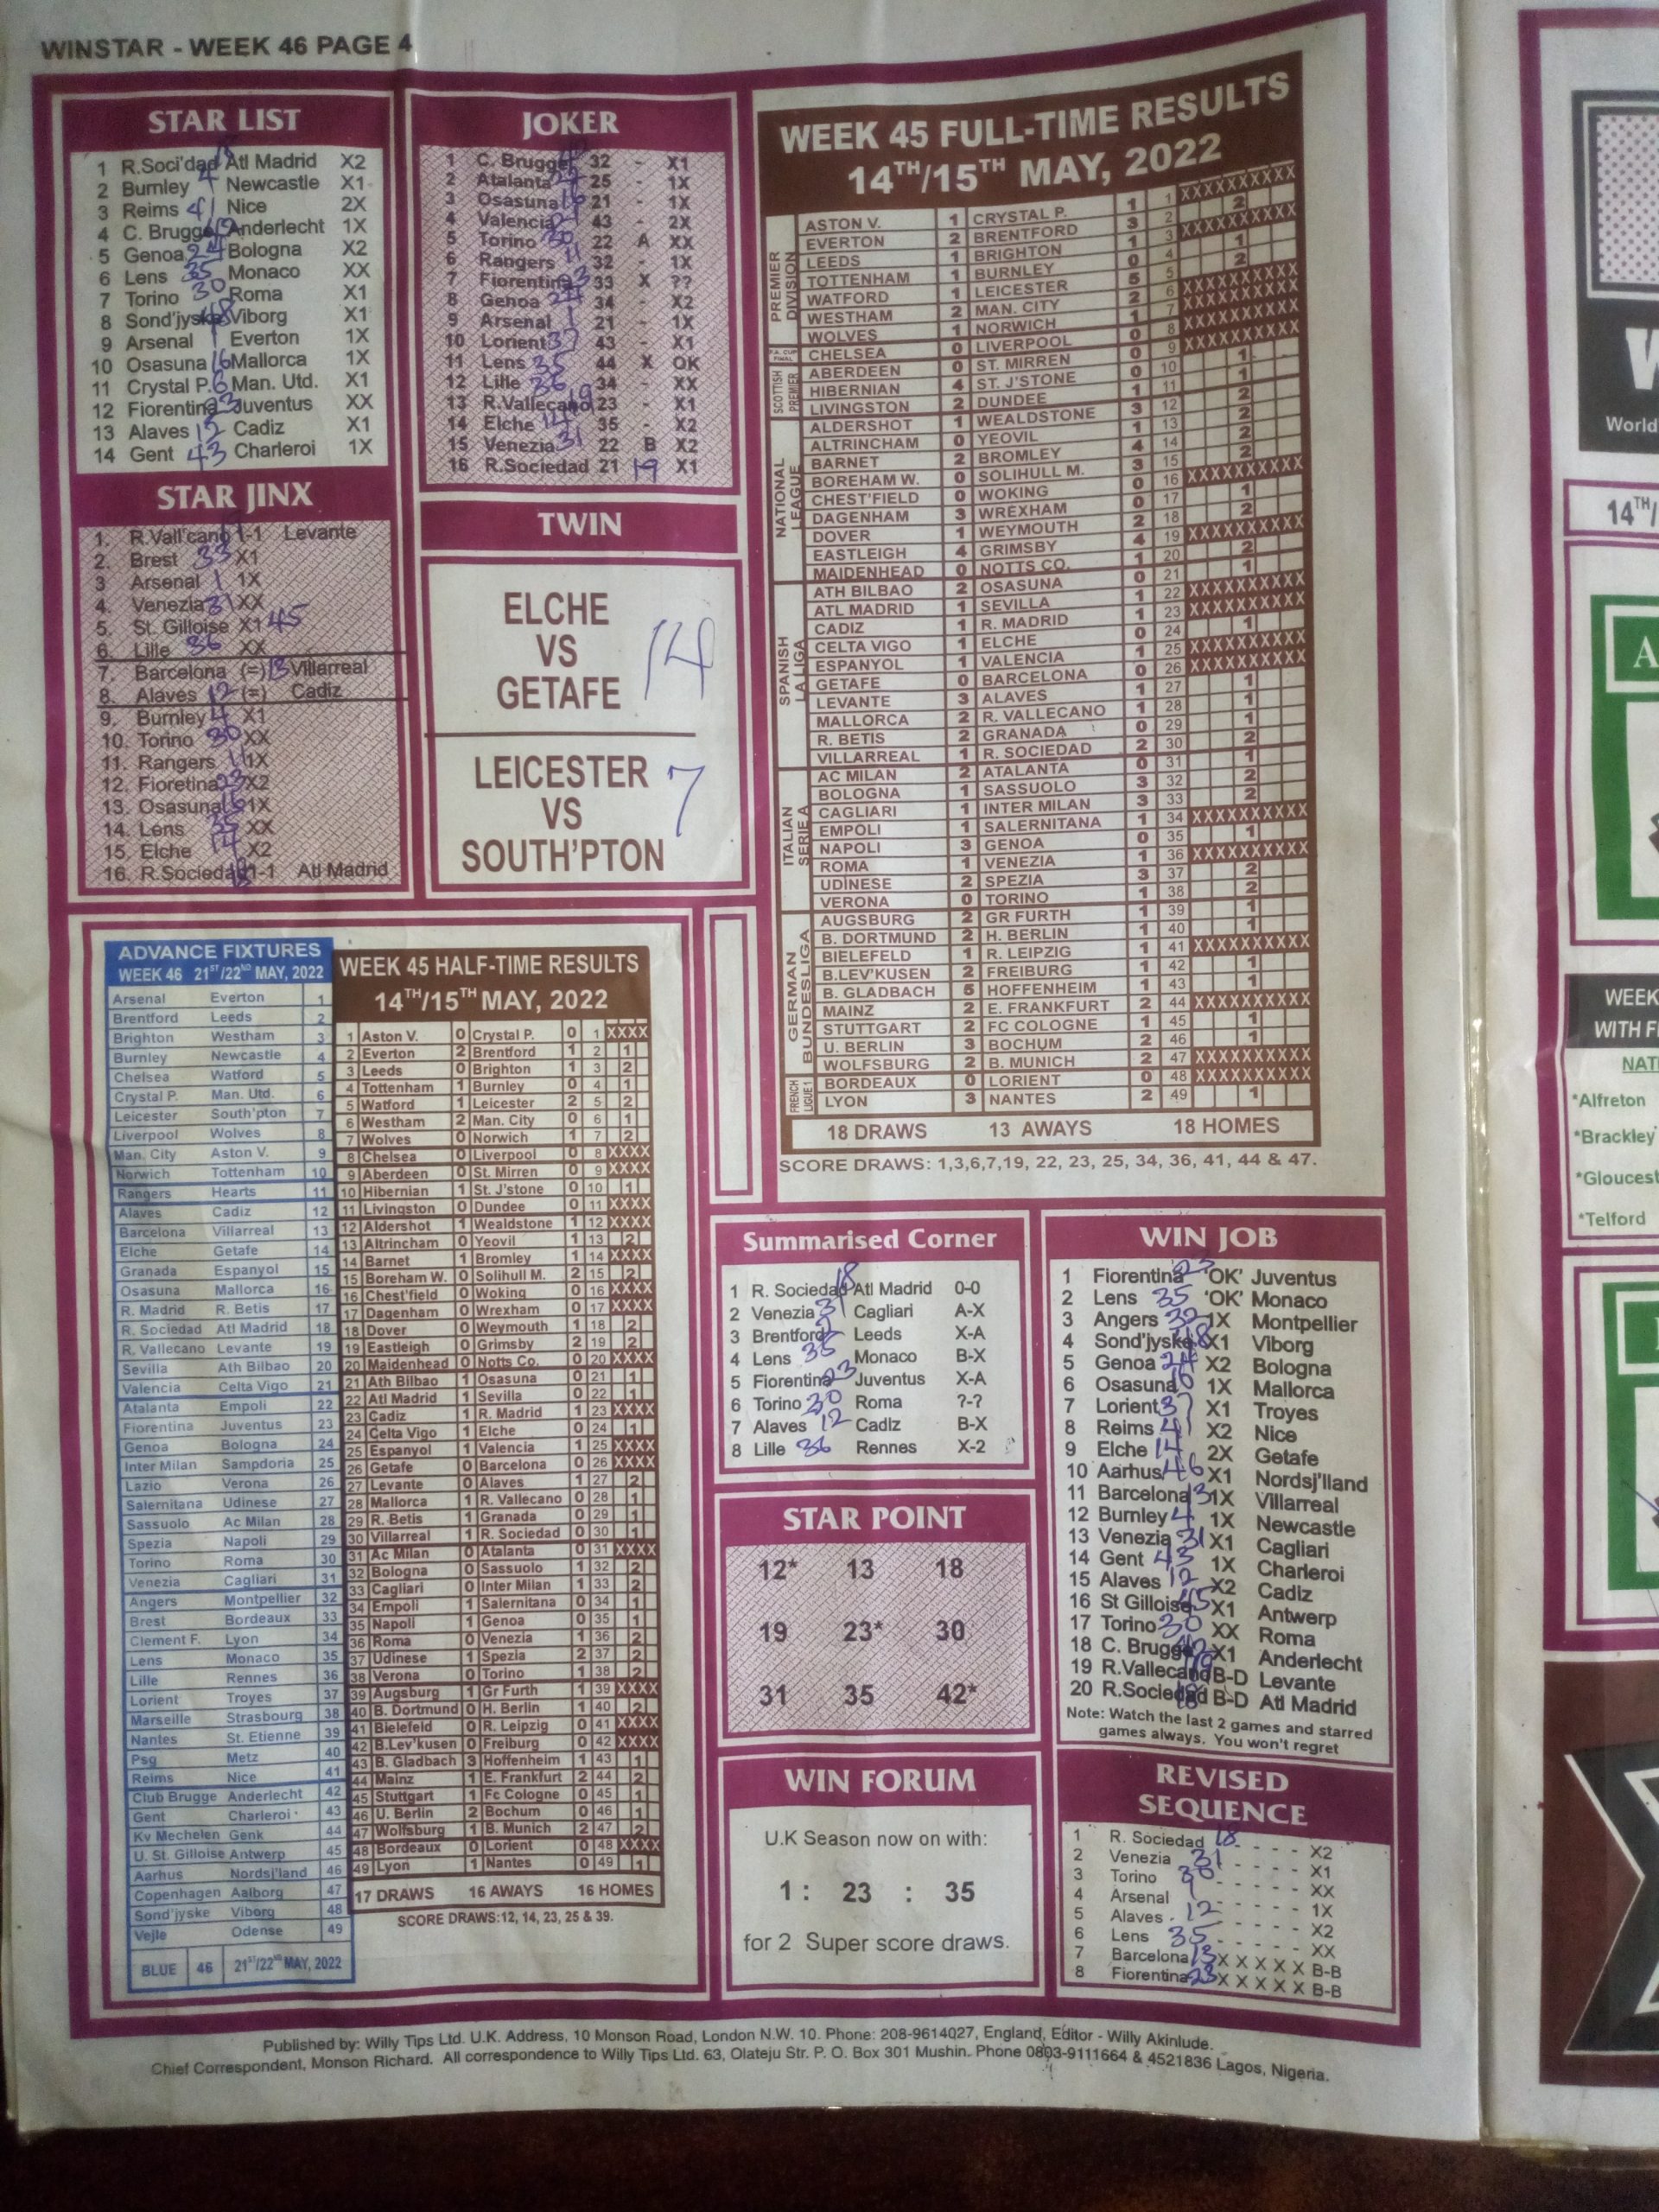 WINSTAR - WEEK 46 PAGE 4
STAR LIST
1 R.Soci'dad 18 Atl Madrid X2
2 Burnley 4 Newcastle X1
3 Reims 41 Nice 2X
4 C. Brugge Anderlecht 1X
5 Genoa 24 Bologna X2
6 Lens 35 Monaco XX
7 Torino 30 Roma X1
8 Sond'jyske 48 Viborg X1
9 Arsenal 1 Everton 1X
10 Osasuna 16 Mallorca 1X
11 Crystal P. 6 Man. Utd. X1
12 Fiorentina 23 Juventus XX
13 Alaves 12 Cadiz X1
14 Gent 43 Charleroi 1X
STAR JINX
1. R.Vall'cano 19 1-1 Levante
2. Brest 33 X1
3 Arsenal 1 1X
4. Venezia 31 XX
5. St. Gilloise X1 45
6. Lille 36 XX
7. Barcelona (=) 13 Villarreal
8. Alaves 12 (=) Cadiz
9. Burnley 4 X1
10. Torino 30 XX
11. Rangers 11 1X
12. Fioretina 23 X2
13. Osasuna 16 1X
14. Lens 35 XX
15. Elche 14 X2
16. R.Sociedad 18 1-1 Atl Madrid
JOKER
1 C. Brugge 42 32 - X1
2 Atalanta 22 25 - 1X
3 Osasuna 16 21 - 1X
4 Valencia 21 43 - 2X
5 Torino 30 22 A XX
6 Rangers 11 32 - 1X
7 Fiorentina 23 33 X ??
8 Genoa 24 34 - X2
9 Arsenal 1 21 1X
10 Lorient 37 43 - X1
11 Lens 35 44 X OK
12 Lille 36 34 - XX
13 R.Vallecano 19 23 - X1
14 Elche 14 35 - X2
15 Venezia 31 22 B X2
16 R.Sociedad 21 19 X1
TWIN
ELCHE
VS 14
GETAFE
LEICESTER
VS 7
SOUTH'PTON
WEEK 45 FULL-TIME RESULTS
14TH/15TH MAY, 2022
PREMIER DIVISION
ASTON V. 1 CRYSTAL P. 1 1 XXXXXXXXXX
EVERTON 2 BRENTFORD 3 2 2
LEEDS 1 BRIGHTON 1 3 XXXXXXXXXX
TOTTENHAM 1 BURNLEY 0 4 1
WATFORD 1 LEICESTER 5 5 2
WESTHAM 2 MAN. CITY 2 6 XXXXXXXXXX
WOLVES 1 NORWICH 1 7 XXXXXXXXXX
F.A. CUP FINAL
CHELSEA 0 LIVERPOOL 0 8 XXXXXXXXXX
SCOTTISH PREMIER
ABERDEEN 0 ST. MIRREN 0 9 XXXXXXXXXX
HIBERNIAN 4 ST. J'STONE 0 10 1
LIVINGSTON 2 DUNDEE 1 11 1
NATIONAL LEAGUE
ALDERSHOT 1 WEALDSTONE 3 12 2
ALTRINCHAM 0 YEOVIL 1 13 2
BARNET 2 BROMLEY 4 14 2
BOREHAM W. 0 SOLIHULL M. 3 15 2
CHEST'FIELD 0 WOKING 0 16 XXXXXXXXXX
DAGENHAM 3 WREXHAM 0 17 1
DOVER 1 WEYMOUTH 2 18 2
EASTLEIGH 4 GRIMSBY 4 19 XXXXXXXXXX
MAIDENHEAD 0 NOTTS CO. 1 20 2
SPANISH LA LIGA
ATH BILBAO 2 OSASUNA 0 21 1
ATL MADRID 1 SEVILLA 1 22 XXXXXXXXXX
CADIZ 1 R. MADRID 1 23 XXXXXXXXXX
CELTA VIGO 1 ELCHE 0 24 1
ESPANYOL 1 VALENCIA 1 25 XXXXXXXXXX
GETAFE 0 BARCELONA 0 26 XXXXXXXXXX
LEVANTE 3 ALAVES 1 27 1
MALLORCA 2 R. VALLECANO 1 28 1
R. BETIS 2 GRANADA 0 29 1
VILLARREAL 1 R. SOCIEDAD 2 30 2
ITALIAN SERIE A
AC MILAN 2 ATALANTA 0 31 1
BOLOGNA 1 SASSUOLO 3 32 2
CAGLIARI 1 INTER MILAN 3 33 2
EMPOLI 1 SALERNITANA 1 34 XXXXXXXXXX
NAPOLI 3 GENOA 0 35 1
ROMA 1 VENEZIA 1 36 XXXXXXXXXX
UDINESE 2 SPEZIA 3 37 2
VERONA 0 TORINO 1 38 2
GERMAN BUNDESLIGA
AUGSBURG 2 GR FURTH 1 39 1
B. DORTMUND 2 H. BERLIN 1 40 1
BIELEFELD 1 R. LEIPZIG 1 41 XXXXXXXXXX
B.LEV'KUSEN 2 FREIBURG 1 42 1
B. GLADBACH 5 HOFFENHEIM 1 43 1
MAINZ 2 E. FRANKFURT 2 44 XXXXXXXXXX
STUTTGART 2 FC COLOGNE 1 45 1
U. BERLIN 3 BOCHUM 2 46 1
WOLFSBURG 2 B. MUNICH 2 47 XXXXXXXXXX
FRENCH LIGUE 1
BORDEAUX 0 LORIENT 0 48 XXXXXXXXXX
LYON 3 NANTES 2 49 1
18 DRAWS 13 AWAYS 18 HOMES
SCORE DRAWS: 1,3,6,7,19, 22, 23, 25, 34, 36, 41, 44 & 47.
ADVANCE FIXTURES
WEEK 46 21ST/22ND MAY, 2022
Arsenal Everton 1
Brentford Leeds 2
Brighton Westham 3
Burnley Newcastle 4
Chelsea Watford 5
Crystal P. Man. Utd. 6
Leicester South'pton 7
Liverpool Wolves 8
Man. City Aston V. 9
Norwich Tottenham 10
Rangers Hearts 11
Alaves Cadiz 12
Barcelona Villarreal 13
Elche Getafe 14
Granada Espanyol 15
Osasuna Mallorca 16
R. Madrid R. Betis 17
R. Sociedad Atl Madrid 18
R. Vallecano Levante 19
Sevilla Ath Bilbao 20
Valencia Celta Vigo 21
Atalanta Empoli 22
Fiorentina Juventus 23
Genoa Bologna 24
Inter Milan Sampdoria 25
Lazio Verona 26
Salernitana Udinese 27
Sassuolo Ac Milan 28
Spezia Napoli 29
Torino Roma 30
Venezia Cagliari 31
Angers Montpellier 32
Brest Bordeaux 33
Clement F. Lyon 34
Lens Monaco 35
Lille Rennes 36
Lorient Troyes 37
Marseille Strasbourg 38
Nantes St. Etienne 39
Psg Metz 40
Reims Nice 41
Club Brugge Anderlecht 42
Gent Charleroi 43
Kv Mechelen Genk 44
U. St. Gilloise Antwerp 45
Aarhus Nordsj'land 46
Copenhagen Aalborg 47
Sond'jyske Viborg 48
Vejle Odense 49
BLUE 46 21ST/22ND MAY, 2022
WEEK 45 HALF-TIME RESULTS
14TH/15TH MAY, 2022
1 Aston V. 0 Crystal P. 0 1 XXXX
2 Everton 2 Brentford 1 2 1
3 Leeds 0 Brighton 1 3 2
4 Tottenham 1 Burnley 0 4 1
5 Watford 1 Leicester 2 5 2
6 Westham 2 Man. City 0 6 1
7 Wolves 0 Norwich 1 7 2
8 Chelsea 0 Liverpool 0 8 XXXX
9 Aberdeen 0 St. Mirren 0 9 XXXX
10 Hibernian 1 St. J'stone 0 10 1
11 Livingston 0 Dundee 0 11 XXXX
12 Aldershot 1 Wealdstone 1 12 XXXX
13 Altrincham 0 Yeovil 1 13 2
14 Barnet 1 Bromley 1 14 XXXX
15 Boreham W. 0 Solihull M. 2 15 2
16 Chest'field 0 Woking 0 16 XXXX
17 Dagenham 0 Wrexham 0 17 XXXX
18 Dover 0 Weymouth 1 18 2
19 Eastleigh 0 Grimsby 2 19 2
20 Maidenhead 0 Notts Co. 0 20 XXXX
21 Ath Bilbao 1 Osasuna 0 21 1
22 Atl Madrid 1 Sevilla 0 22 1
23 Cadiz 1 R. Madrid 1 23 XXXX
24 Celta Vigo 1 Elche 0 24 1
25 Espanyol 1 Valencia 1 25 XXXX
26 Getafe 0 Barcelona 0 26 XXXX
27 Levante 0 Alaves 1 27 2
28 Mallorca 1 R. Vallecano 0 28 1
29 R. Betis 1 Granada 0 29 1
30 Villarreal 1 R. Sociedad 0 30 1
31 Ac Milan 0 Atalanta 0 31 XXXX
32 Bologna 0 Sassuolo 1 32 2
33 Cagliari 0 Inter Milan 1 33 2
34 Empoli 1 Salernitana 0 34 1
35 Napoli 1 Genoa 0 35 1
36 Roma 0 Venezia 1 36 2
37 Udinese 1 Spezia 2 37 2
38 Verona 0 Torino 1 38 2
39 Augsburg 1 Gr Furth 1 39 XXXX
40 B. Dortmund 0 H. Berlin 1 40 2
41 Bielefeld 0 R. Leipzig 0 41 XXXX
42 B.Lev'kusen 0 Freiburg 0 42 XXXX
43 B. Gladbach 3 Hoffenheim 1 43 1
44 Mainz 1 E. Frankfurt 2 44 2
45 Stuttgart 1 Fc Cologne 0 45 1
46 U. Berlin 2 Bochum 0 46 1
47 Wolfsburg 1 B. Munich 2 47 2
48 Bordeaux 0 Lorient 0 48 XXXX
49 Lyon 1 Nantes 0 49 1
17 DRAWS 16 AWAYS 16 HOMES
SCORE DRAWS:12, 14, 23, 25 & 39.
Summarised Corner
1 R. Sociedad 18 Atl Madrid 0-0
2 Venezia 31 Cagliari A-X
3 Brentford 2 Leeds X-A
4 Lens 35 Monaco B-X
5 Fiorentina 23 Juventus X-A
6 Torino 30 Roma ?-?
7 Alaves 12 Cadiz B-X
8 Lille 36 Rennes X-2
STAR POINT
12* 13 18
19 23* 30
31 35 42*
WIN FORUM
U.K Season now on with:
1 : 23 : 35
for 2 Super score draws.
WIN JOB
1 Fiorentina 23 'OK' Juventus
2 Lens 35 'OK' Monaco
3 Angers 32 1X Montpellier
4 Sond'jyske 48 X1 Viborg
5 Genoa 24 X2 Bologna
6 Osasuna 16 1X Mallorca
7 Lorient 37 X1 Troyes
8 Reims 41 X2 Nice
9 Elche 14 2X Getafe
10 Aarhus 46 X1 Nordsj'lland
11 Barcelona 13 1X Villarreal
12 Burnley 4 1X Newcastle
13 Venezia 31 X1 Cagliari
14 Gent 43 1X Charleroi
15 Alaves 12 X2 Cadiz
16 St Gilloise 45 X1 Antwerp
17 Torino 30 XX Roma
18 C. Brugge 42 X1 Anderlecht
19 R.Vallecano 19 B-D Levante
20 R.Sociedad 18 B-D Atl Madrid
Note: Watch the last 2 games and starred
games always. You won't regret
REVISED
SEQUENCE
1 R. Sociedad 18 - - - - X2
2 Venezia 31 - - - - X1
3 Torino 30 - - - - XX
4 Arsenal 1 - - - - 1X
5 Alaves 12 - - - - X2
6 Lens 35 - - - - - XX
7 Barcelona 13 X X X X X B-B
8 Fiorentina 23 X X X X X B-B
Published by: Willy Tips Ltd. U.K. Address, 10 Monson Road, London N.W. 10. Phone: 208-9614027, England, Editor - Willy Akinlude.
Chief Correspondent, Monson Richard. All correspondence to Willy Tips Ltd. 63, Olateju Str. P. O. Box 301 Mushin. Phone 0803-9111664 & 4521836 Lagos, Nigeria.
W
World
14TH/
A
WEEK
WITH F
NATI
*Alfreton
*Brackley
*Gloucest
*Telford